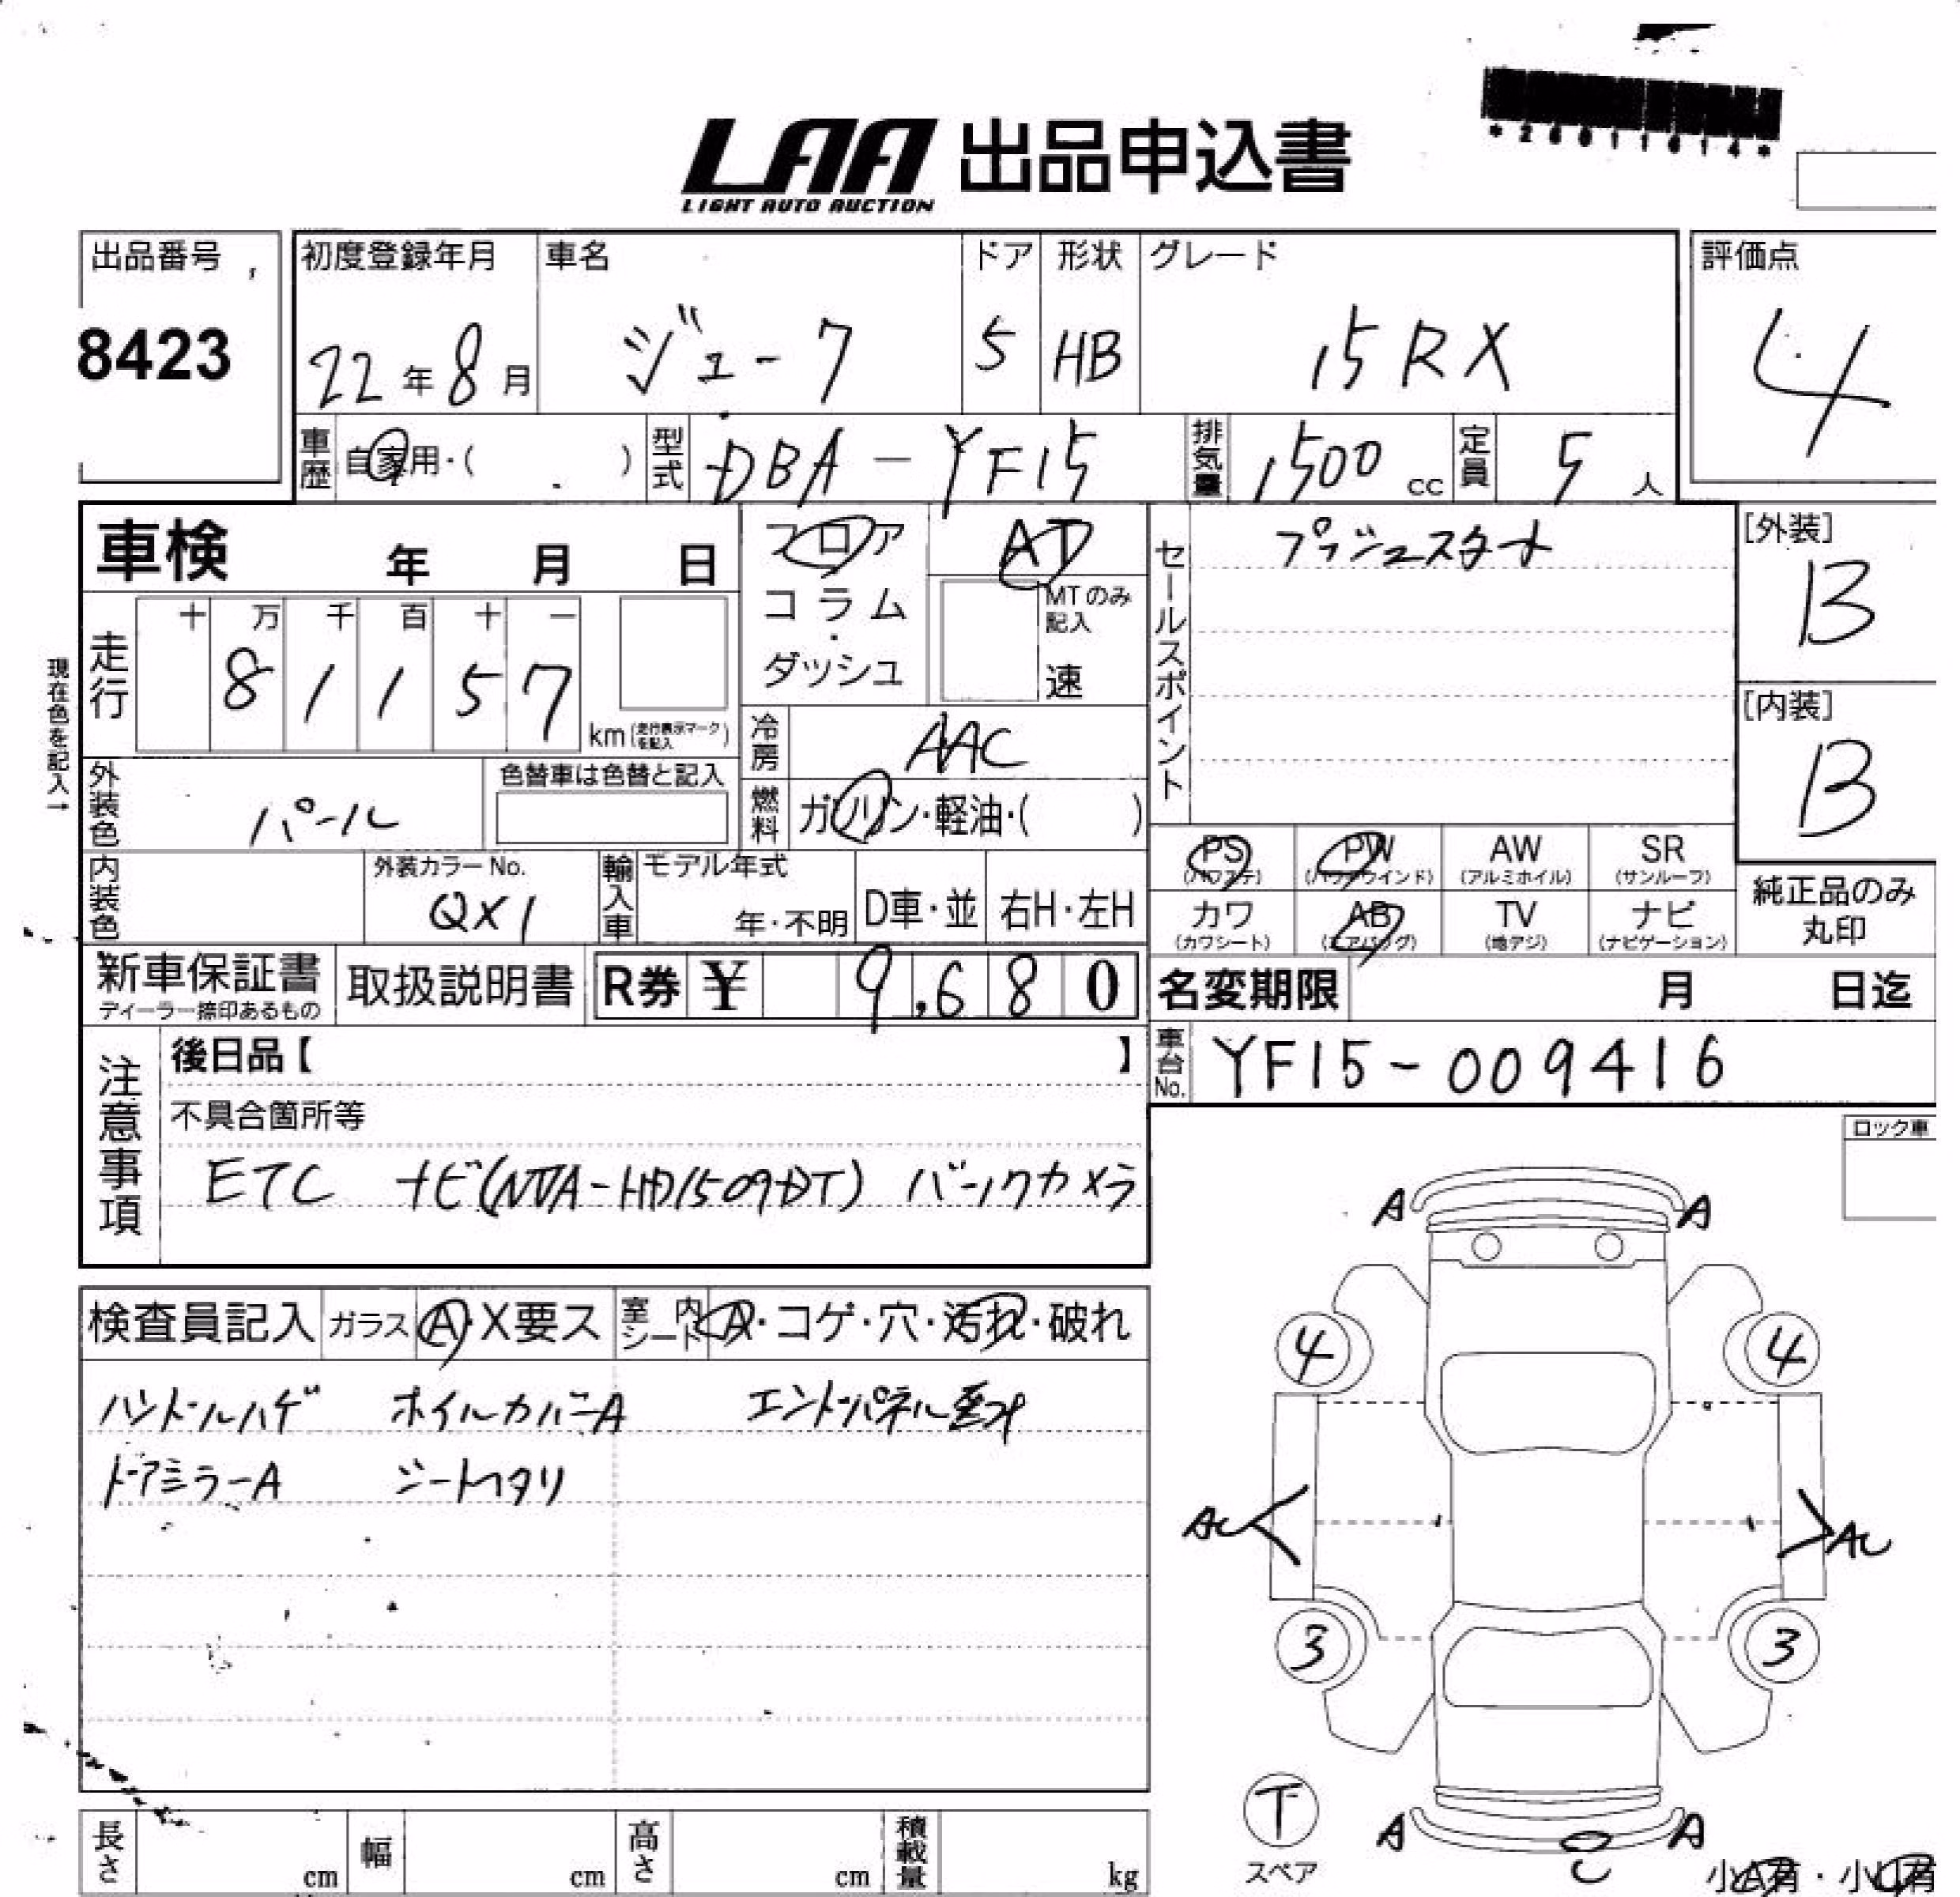 *26011614*
LAA 出品申込書
LIGHT AUTO AUCTION
出品番号 初度登録年月 車名 ドア 形状 グレード 評価点
8423 22年8月 ジューク 5 HB 15RX 4
車歴 自家用・( ) 型式 DBA-YF15 排気量 1500cc 定員 5人
車検 年 月 日 フロア AT セールスポイント プッシュスタート [外装]
コラム・ダッシュ MTのみ記入 速 B
走行 十 万 千 百 十 一
81157 km(走行表示マークを記入)
現在色を記入→
冷房 AAC [内装]
外装色 パール 色替車は色替と記入 燃料 ガソリン・軽油・( ) B
PS(パワステ) PW(パワーウインド) AW(アルミホイル) SR(サンルーフ)
内装色 外装カラーNo. QX1 輸入車 モデル年式 年・不明 D車・並 右H・左H
カワ(カワシート) AB(エアバッグ) TV(地デジ) ナビ(ナビゲーション) 純正品のみ丸印
新車保証書 ディーラー捺印あるもの 取扱説明書 R券 ¥ 9,680 名変期限 月 日迄
注意事項 後日品【 】 車台No. YF15-009416
不具合箇所等 ロック車
ETC ナビ( バックカメラ
A A
検査員記入 ガラス A・X要ス 室内シート A・コゲ・穴・汚れ・破れ
4 4
ハンドルハゲ ホイルカバーA エンドパネル
ドアミラーA シートヘタリ
AC AC
3 3
下 スペア
A A
長さ cm 幅 cm 高さ cm 積載量 kg 小A有・小U有